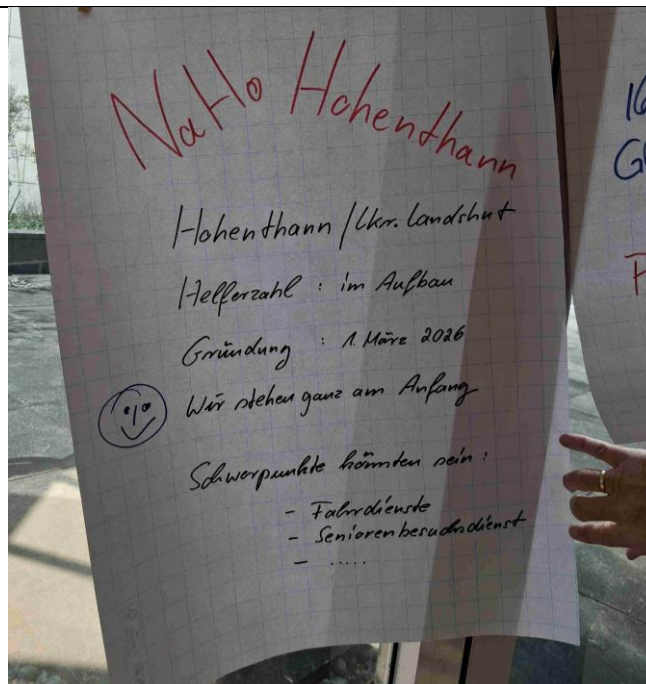 NaHo Hohenthann
Hohenthann / Lkr. Landshut
Helferzahl : im Aufbau
Gründung : 1. März 2026
Wir stehen ganz am Anfang
Schwerpunkte könnten sein :
- Fahrdienste
- Seniorenbesuchsdienst
- .....